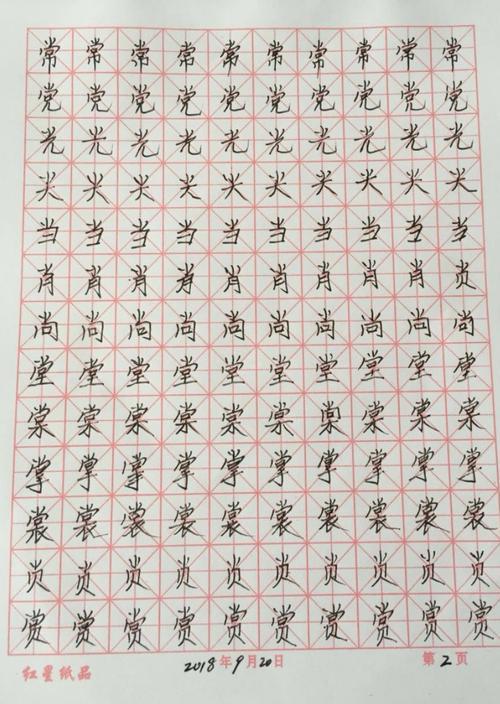 常常常常常常常常常常
党党党党党党党党党党
光光光光光光光光光光
尖尖尖尖尖尖尖尖尖尖
当当当当当当当当当当
肖肖肖肖肖肖肖肖肖
尚尚尚尚尚尚尚尚尚尚
堂堂堂堂堂堂堂堂堂堂
棠棠棠棠棠棠棠棠棠棠
掌掌掌掌掌掌掌掌掌掌
裳裳裳裳裳裳裳裳裳裳
赏赏赏赏赏赏赏赏赏赏
红星纸品 2018年9月20日 第2页